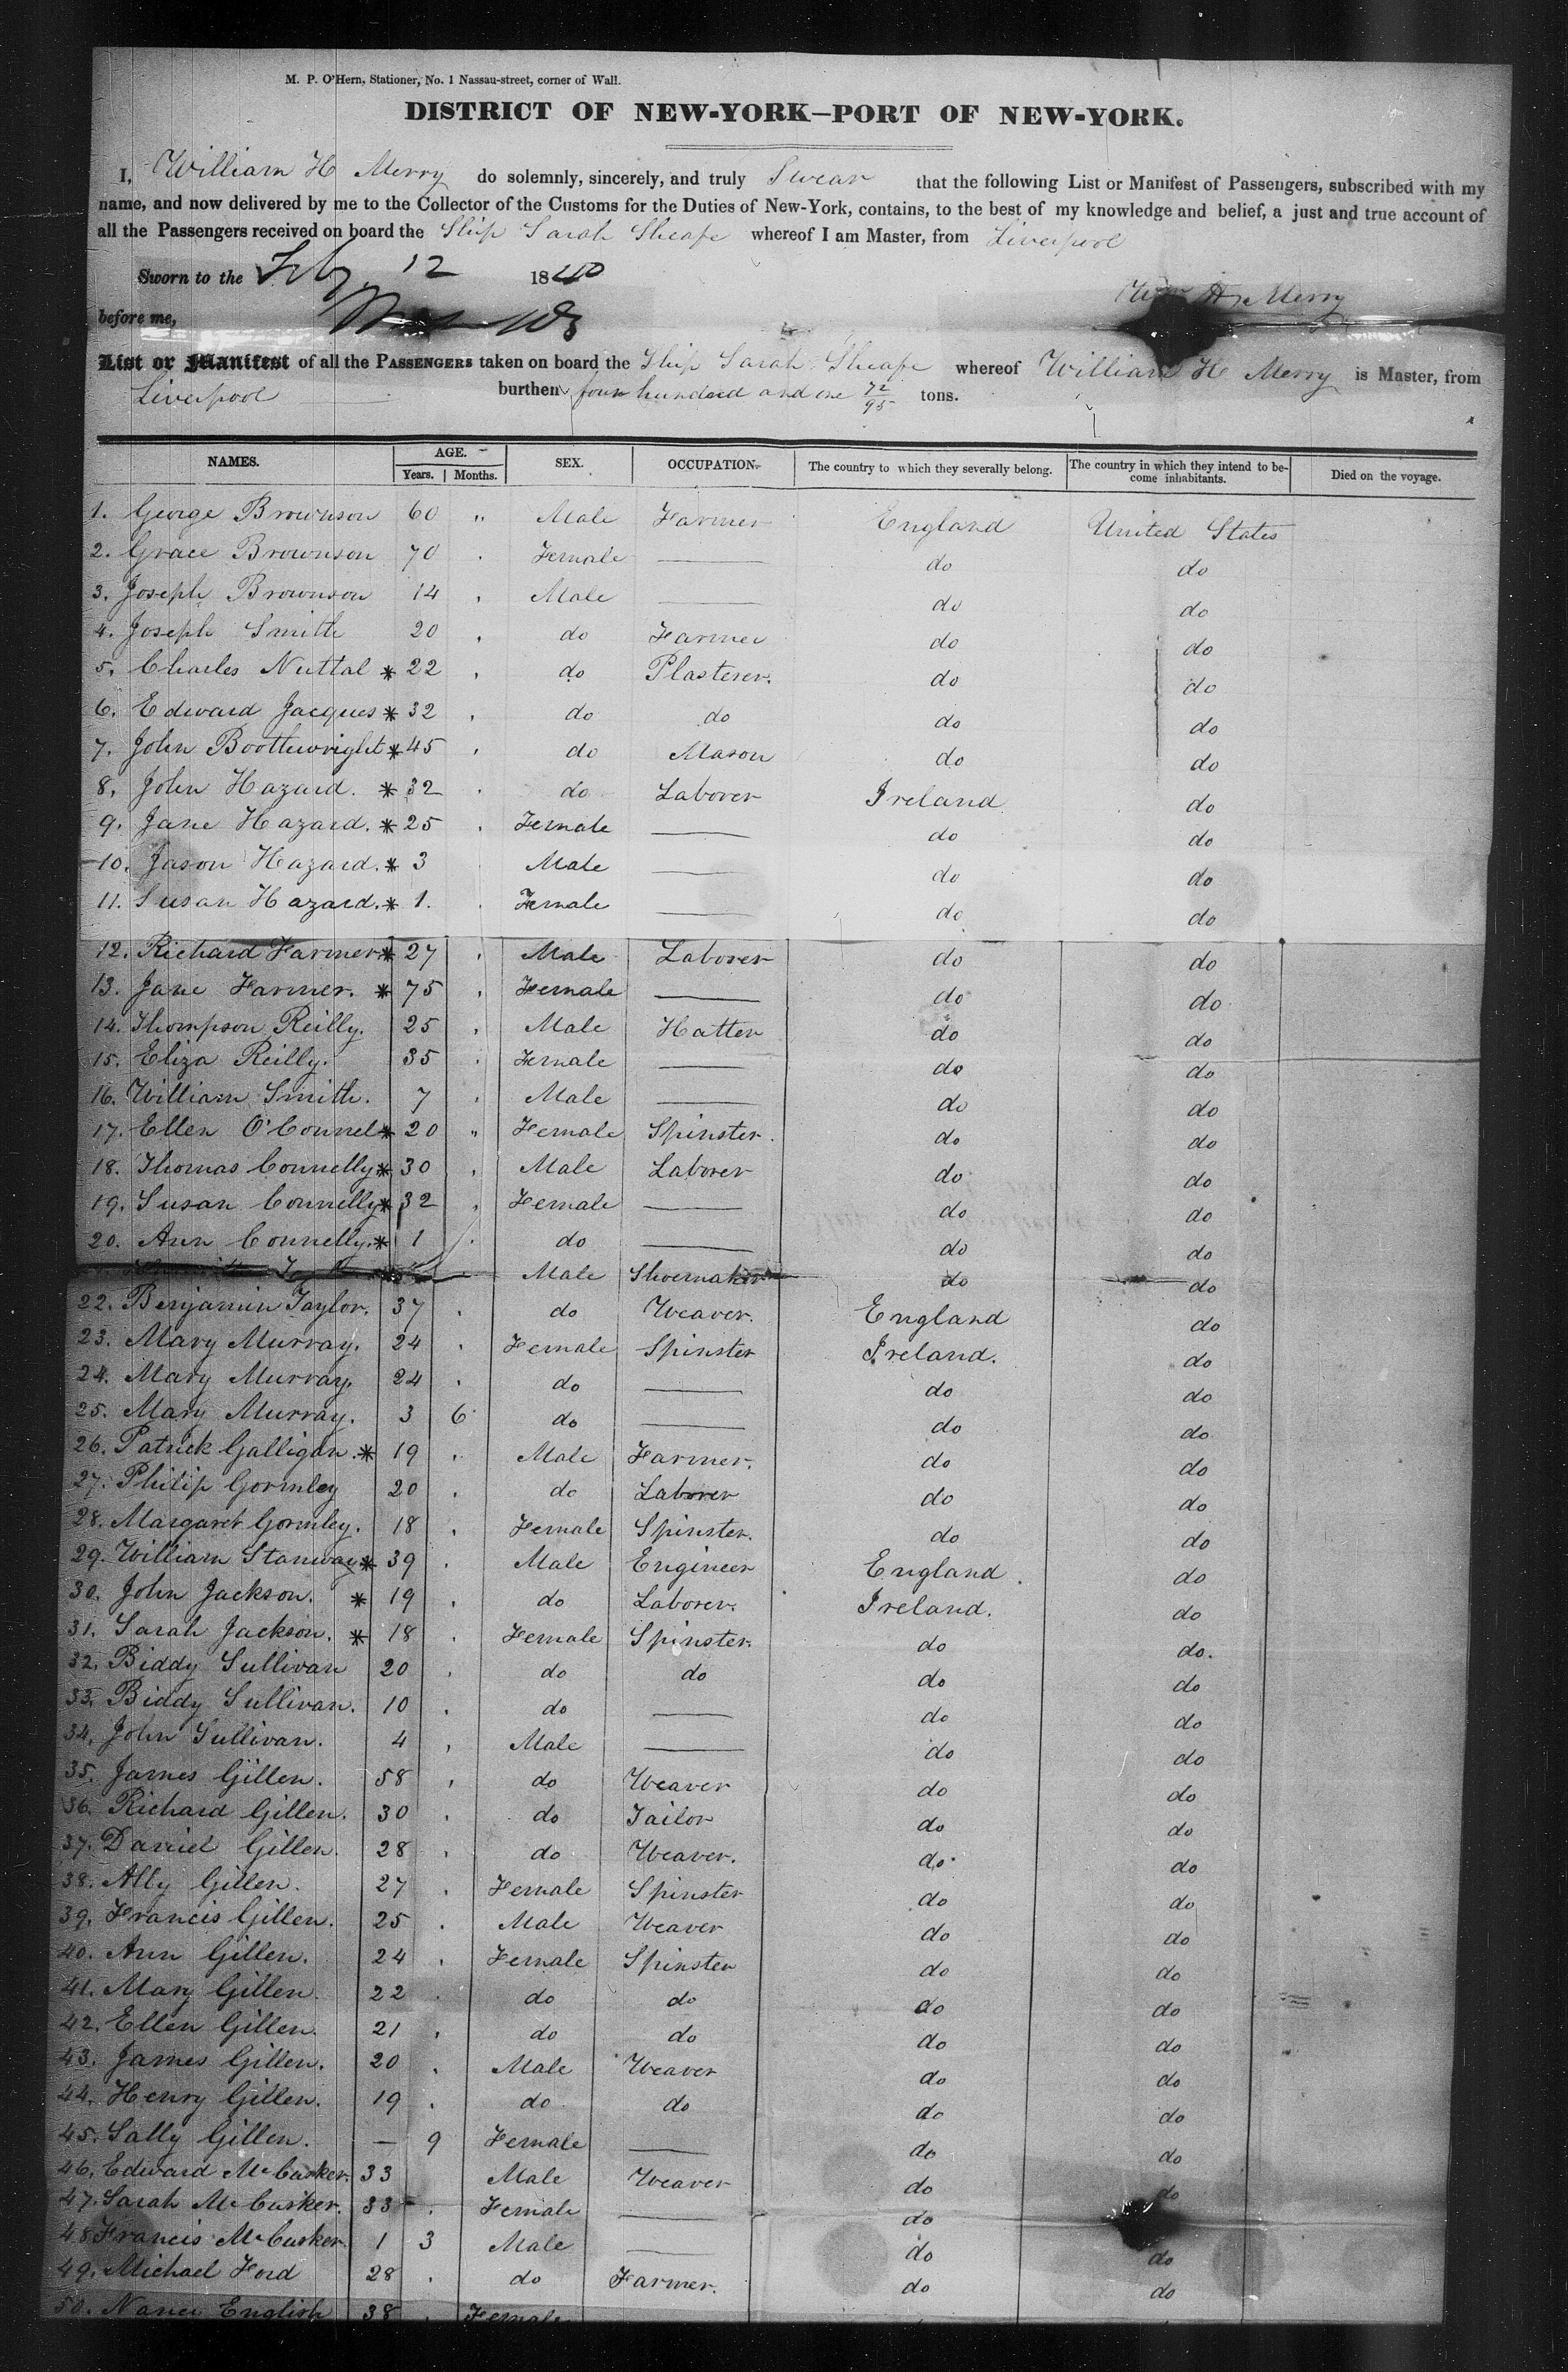 M. P. O'Hern, Stationer, No. 1 Nassau-street, corner of Wall.
DISTRICT OF NEW-YORK—PORT OF NEW-YORK.
I, William H Merry do solemnly, sincerely, and truly Swear that the following List or Manifest of Passengers, subscribed with my
name, and now delivered by me to the Collector of the Customs for the Duties of New-York, contains, to the best of my knowledge and belief, a just and true account of
all the Passengers received on board the Ship Sarah Sheafe whereof I am Master, from Liverpool
Sworn to the Feby 12 1840
Wm H Merry
before me,
List or Manifest of all the PASSENGERS taken on board the Ship Sarah Sheafe whereof William H Merry is Master, from
Liverpool burthen four hundred and one 72/95 tons.
NAMES. AGE. Years. Months. SEX. OCCUPATION. The country to which they severally belong. The country in which they intend to become inhabitants. Died on the voyage.
1. George Brownson 60 " Male Farmer England United States
2. Grace Brownson 70 Female — do do
3. Joseph Brownson 14 Male — do do
4. Joseph Smith 20 do Farmer do do
5. Charles Nuttal * 22 do Plasterer. do do
6. Edward Jacques * 32 do do do do
7. John Boothwright * 45 do Mason do do
8. John Hazard. * 32 do Laborer Ireland do
9. Jane Hazard. * 25 Female — do do
10. Jason Hazard. * 3 Male — do do
11. Susan Hazard. * 1. Female — do do
12. Richard Farmer * 27 Male Laborer do do
13. Jane Farmer. * 75 Female — do do
14. Thompson Reilly. 25 Male Hatter do do
15. Eliza Reilly. 35 Female — do do
16. William Smith. 7 Male — do do
17. Ellen O'Connel * 20 " Female Spinster. do do
18. Thomas Connelly * 30 Male Laborer do do
19. Susan Connelly * 32 Female — do do
20. Ann Connelly. * 1 do — do do
Male Shoemaker do do
22. Benjamin Taylor. 37 do Weaver. England do
23. Mary Murray. 24 Female Spinster Ireland. do
24. Mary Murray. 24 do — do do
25. Mary Murray. 3 6 do — do do
26. Patrick Galligan. * 19 Male Farmer. do do
27. Philip Gormley 20 do Laborer do do
28. Margaret Gormley. 18 Female Spinster. do do
29. William Stanway * 39 Male Engineer England. do
30. John Jackson. * 19 do Laborer. Ireland. do
31. Sarah Jackson. * 18 Female Spinster. do do.
32. Biddy Sullivan 20 do do do do
33. Biddy Sullivan. 10 do — do do
34. John Sullivan. 4 Male — do do
35. James Gillen. 58 do Weaver do do
36. Richard Gillen. 30 do Tailor do do
37. Daniel Gillen. 28 do Weaver. do do
38. Ally Gillen. 27 Female Spinster do do
39. Francis Gillen. 25 Male Weaver do do
40. Ann Gillen. 24 Female Spinster do do
41. Mary Gillen. 22 do do do do
42. Ellen Gillen. 21 do do do do
43. James Gillen. 20 Male Weaver do do
44. Henry Gillen. 19 do do do do
45. Sally Gillen. — 9 Female — do do
46. Edward McCusker. 33 Male Weaver do do
47. Sarah McCusker. 33 Female — do do
48 Francis McCusker. 1 3 Male — do do
49. Michael Ford 28 do Farmer. do do
50. Nancy English 38 Female